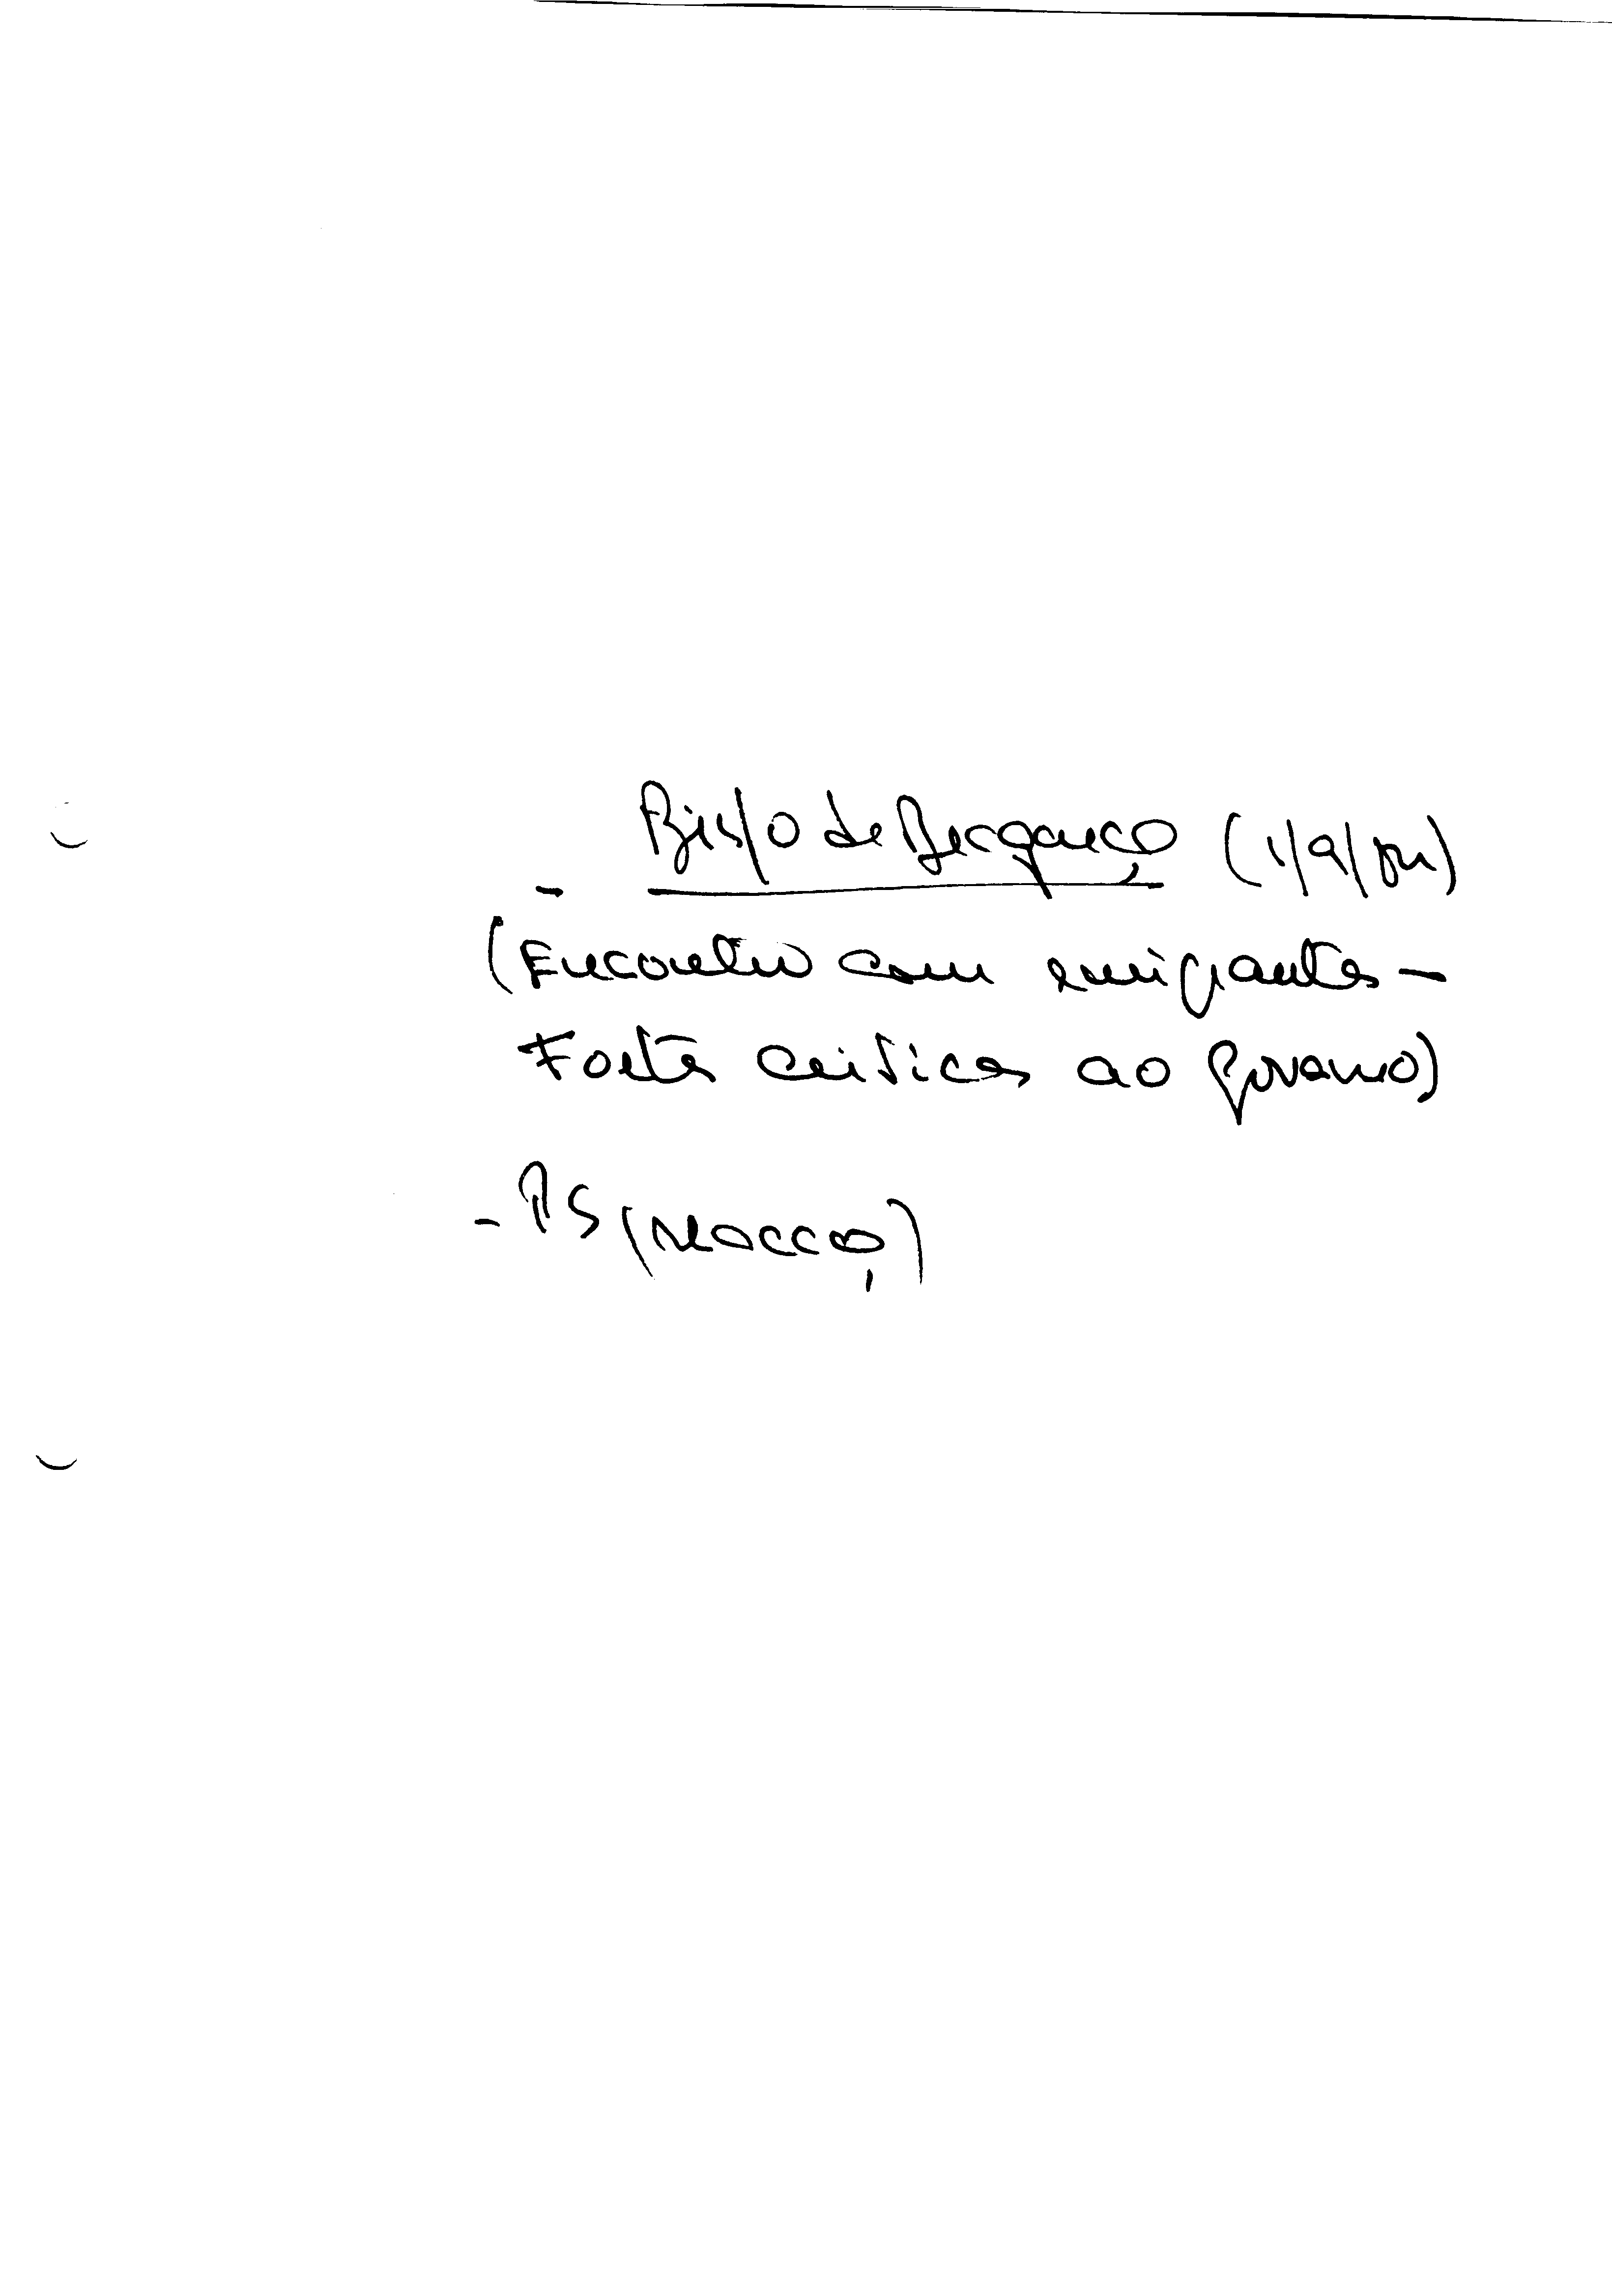 - Bispo de Bragança (1/9/84)
(Encontro com emigrantes -
Fortes críticas ao governo)
- PS (Macedo)